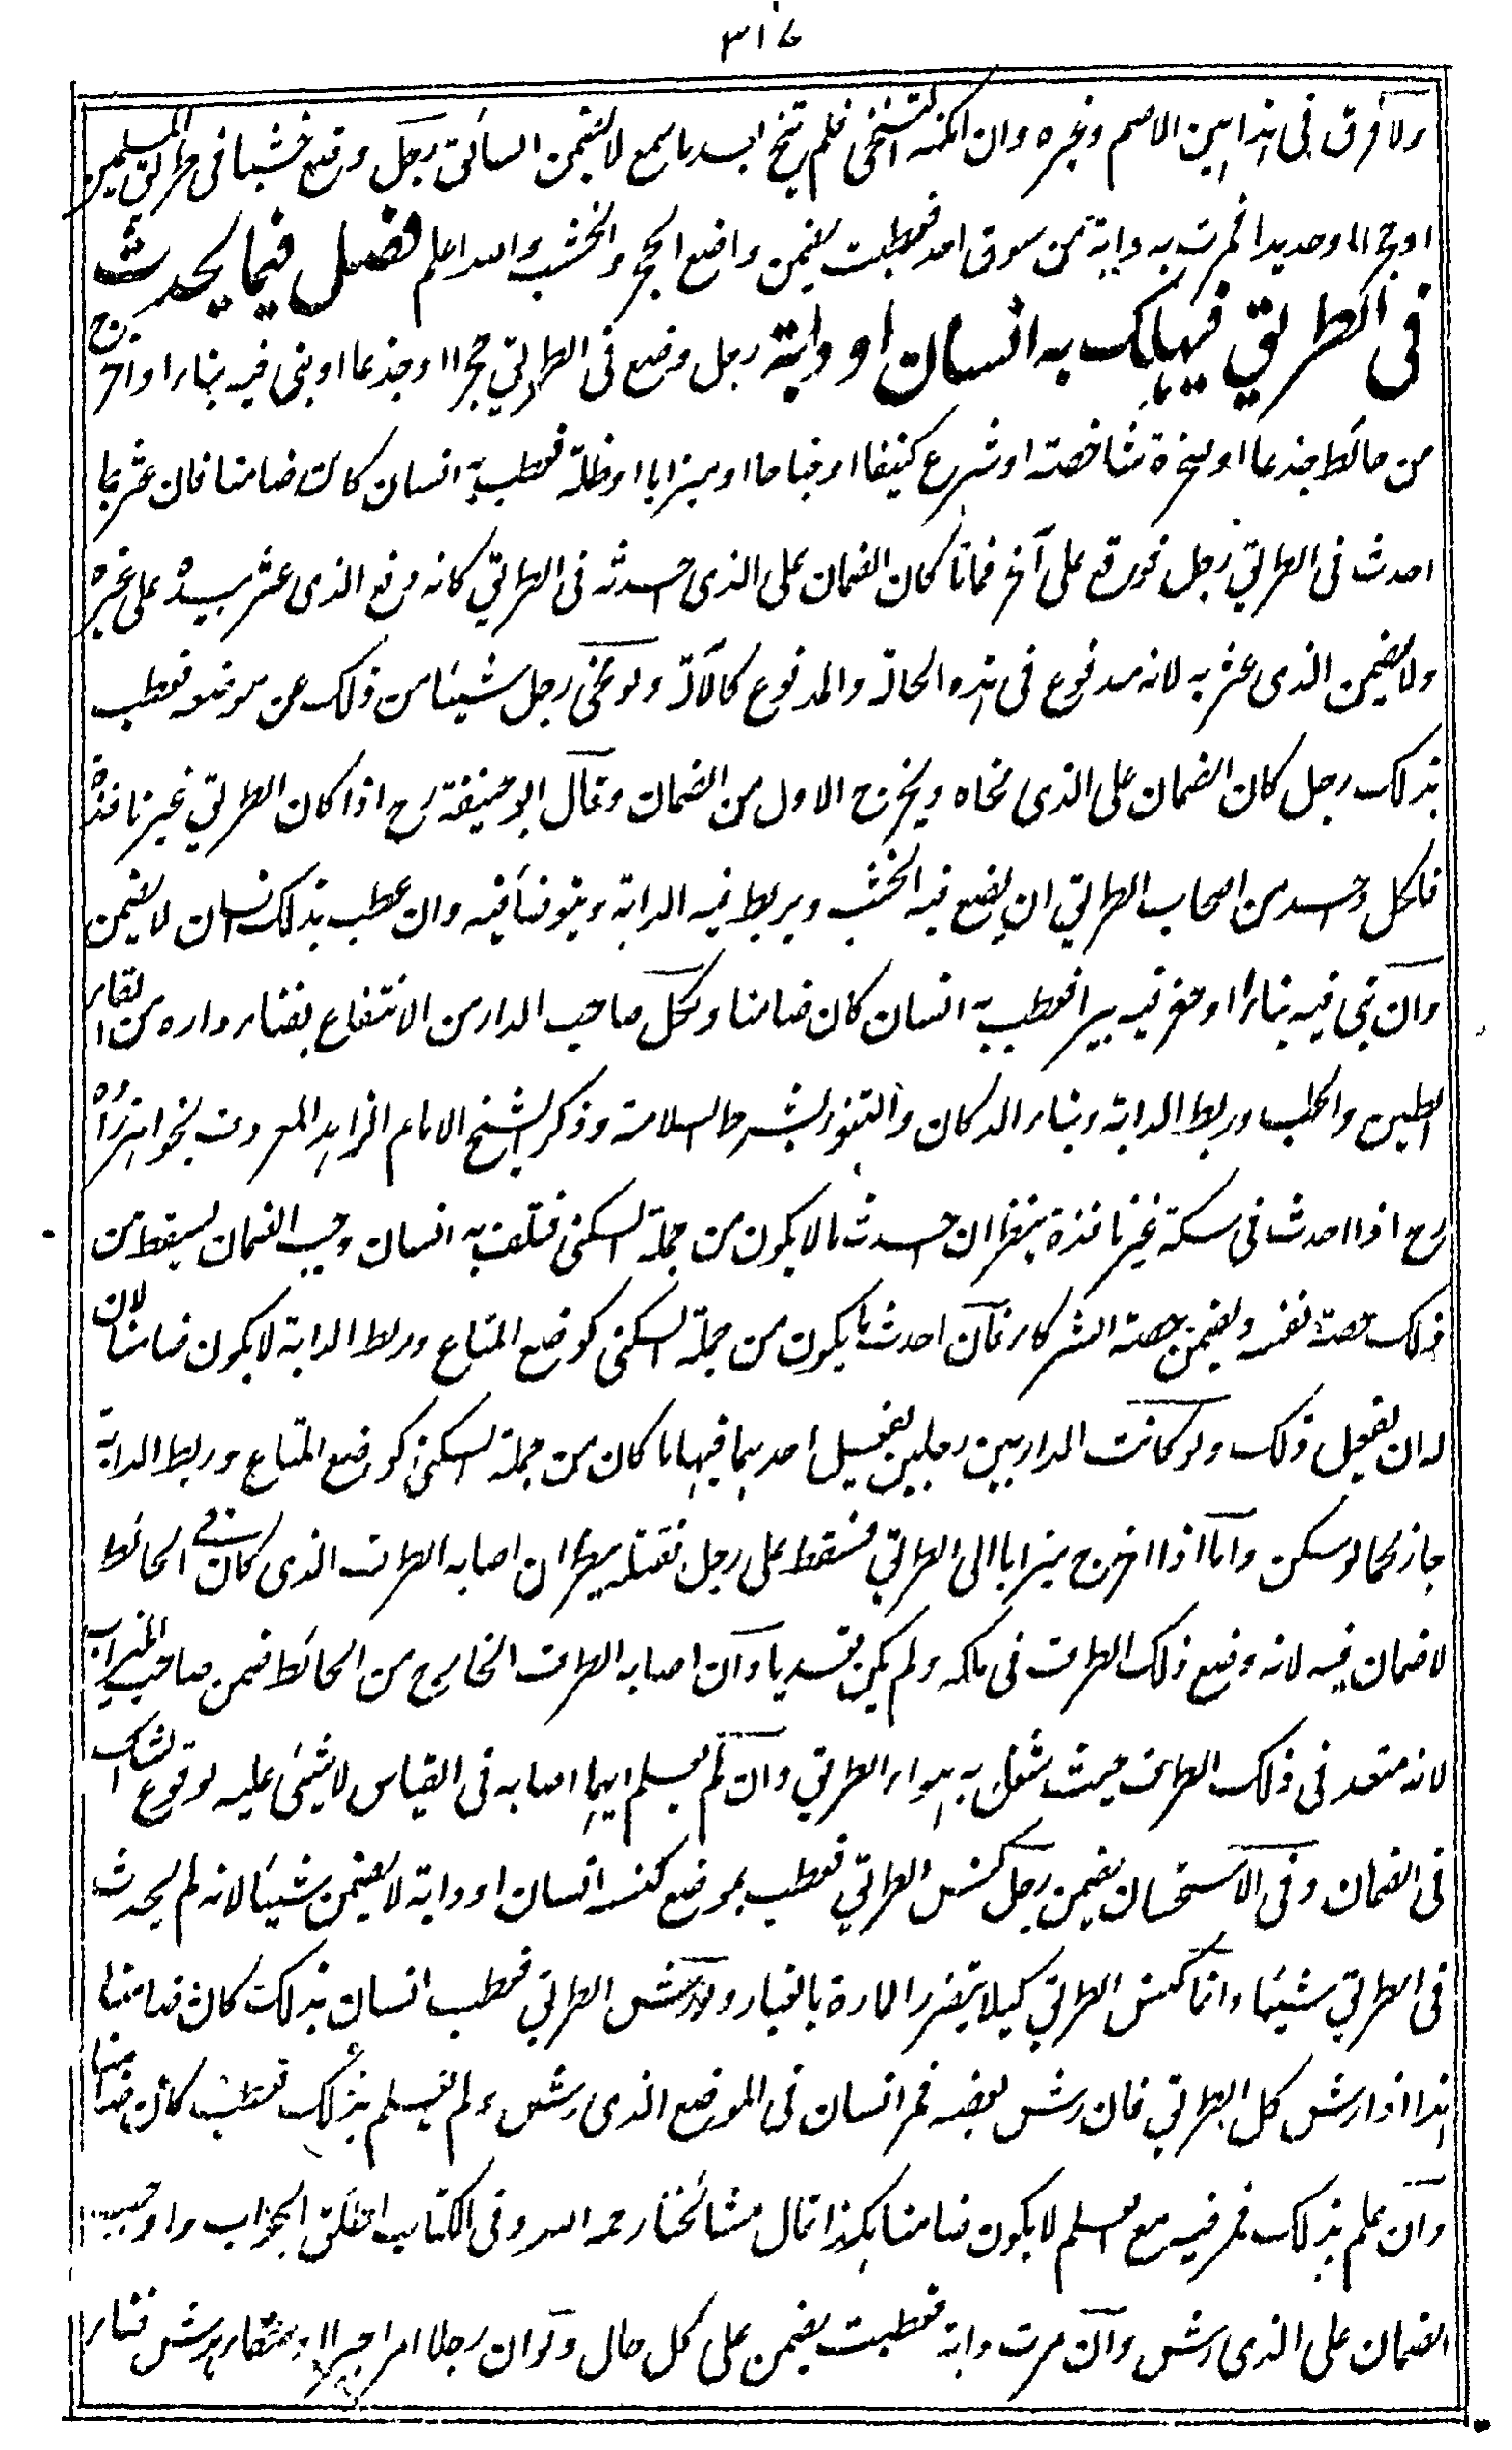 ٣١٤
ولا فرق فى هذا بين الاصم وغيره وان امكنه التنحى فلم يتنح بعد ما سمع لا يضمن السائق رجل وضع خشبا فى طريق المسلمين
او حجرا او حديدا فمرت به دابة من سوق احد فعطبت يضمن واضع الحجر والخشب والله اعلم فصل فيما يحدث
فى الطريق فيهلك به انسان او دابة رجل وضع فى الطريق حجرا او جذعا او بنى فيه بناء او اخرج
من حائط جذعا او صخرة شاخصة او شرع كنيفا او جناحا او ميزابا او ظلة فعطب به انسان كان ضامنا فان عثر بما
احدث فى الطريق رجل فوقع على آخر فماتا كان الضمان على الذى احدثه فى الطريق كانه دفع الذى عثر بيده على غيره
ولا يضمن الذى عثر به لانه مدفوع فى هذه الحالة والمدفوع كالآلة ولو نحى رجل شيئا من ذلك عن موضعه فعطب
بذلك رجل كان الضمان على الذى نحاه ويخرج الاول من الضمان وقال ابو حنيفة رح اذا كان الطريق غير نافذة
فلكل واحد من اصحاب الطريق ان يضع فيه الخشب ويربط فيه الدابة ويتوضأ فيه وان عطب بذلك انسان لا يضمن
وان بنى فيه بناء او حفر فيه بيرا فعطب به انسان كان ضامنا ولكل صاحب الدار من الانتفاع بفناء داره من القاء
الطين والحطب وربط الدابة وبناء الدكان والتنور بشرط السلامة وذكر الشيخ الامام الزاهد المعروف بخواهرزاده
رح اذا احدث فى سكة غير نافذة ينظر ان احدث ما لا يكون من جملة السكنى فتلف به انسان وجب الضمان يسقط من
ذلك حصة نفسه ويضمن حصة الشركاء فان احدث ما يكون من جملة السكنى كوضع المتاع وربط الدابة لا يكون ضامنا لان
له ان يفعل ذلك ولو كانت الدار بين رجلين يفعل احدهما فيها ما كان من جملة السكنى كوضع المتاع وربط الدابة
جاز كما لو سكن واما اذا اخرج ميزابا الى الطريق فسقط على رجل فقتله ينظر ان اصابه الطرف الذى كان فى الحائط
لا ضمان فيه لانه وضع ذلك الطرف فى ملكه ولم يكن تعديا وان اصابه الطرف الخارج من الحائط ضمن صاحب الميزاب
لانه متعد فى ذلك الطرف حيث شغل به هواء الطريق وان لم يعلم ايهما اصابه فى القياس لا شيئ عليه لوقوع الشك
فى الضمان وفى الاستحسان يضمن رجل كنس الطريق فعطب بموضع كنسه انسان او دابة لا يضمن شيئا لانه لم يحدث
فى الطريق شيئا وانما كنس الطريق كيلا يتضرر المارة بالغبار ولو رش الطريق فعطب انسان بذلك كان ضامنا
هذا اذا رش كل الطريق فان رش بعضه فمر انسان فى الموضع الذى رش ولم يعلم بذلك فعطب كان ضامنا
وان علم بذلك فمر فيه مع العلم لا يكون ضامنا هكذا قال مشائخنا رحمه الله وفى الكتاب اطلق الجواب واوجب
الضمان على الذى رش وان مرت دابة فعطبت يضمن على كل حال ولو ان رجلا امر اجيرا او سقاء يرش فناء